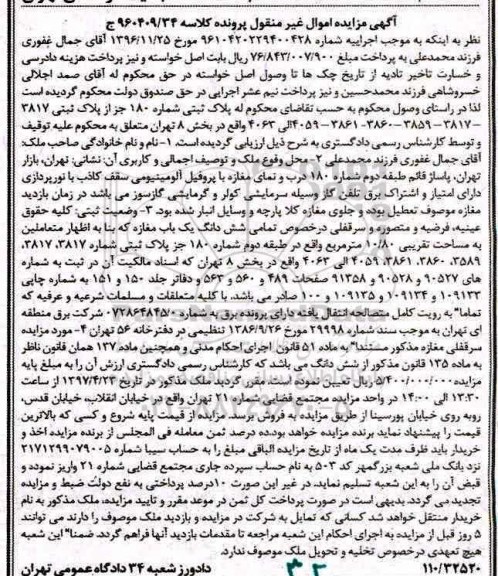 آگهی مزایده اموال غیر منقول پرونده کلاسه ۹۶۰۴۰۹/۳۴ ج
نظر به اینکه به موجب اجراییه شماره ۹۶۱۰۴۲۰۲۲۹۴۰۰۴۲۸ مورخ ۱۳۹۶/۱۱/۲۵ آقای جمال غفوری
فرزند محمدعلی به پرداخت مبلغ ۷۶/۸۴۳/۰۰۷/۹۰۰ ریال بابت اصل خواسته و نیز پرداخت هزینه دادرسی
و خسارت تاخیر تادیه از تاریخ چک ها تا وصول اصل خواسته در حق محکوم له آقای صمد اجلالی
خسروشاهی فرزند محمدحسین و نیز پرداخت نیم عشر اجرایی در حق صندوق دولت محکوم گردیده است
لذا در راستای وصول محکوم به حسب تقاضای محکوم له پلاک ثبتی شماره ۱۸۰ جز از پلاک ثبتی ۳۸۱۷
-۳۸۱۷ -۳۸۵۹ -۳۸۶۰- ۳۸۶۱ -۴۰۵۹الی ۴۰۶۳ واقع در بخش ۸ تهران متعلق به محکوم علیه توقیف
و توسط کارشناس رسمی دادگستری به شرح ذیل ارزیابی گردیده است. ۱- نام و نام خانوادگی صاحب ملک:
آقای جمال غفوری فرزند محمدعلی ۲- محل وقوع ملک و توصیف اجمالی و کاربری آن: نشانی: تهران، بازار
تهران، پاساژ قائم طبقه دوم شماره ۱۸۰ درب و نمای مغازه با پروفیل آلومینومی سقف کاذب با نورپردازی
دارای امتیاز و اشتراک برق تلفن گاز وسیله سرمایشی کولر و گرمایشی گازسوز می باشد در زمان بازدید
مغازه موصوف تعطیل بوده و جلوی مغازه کلا پارچه و وسایل انبار شده بود. ۳- وضعیت ثبتی: کلیه حقوق
عینیه، فرضیه و متصوره و سرقفلی درخصوص تمامی شش دانگ یک باب مغازه که بنا به اظهار متعاملین
به مساحت تقریبی ۱۰/۸۰ مترمربع واقع در طبقه دوم شماره ۱۸۰ جز پلاک ثبتی شماره ۳۸۱۷، ۳۸۱۷،
۳۵۸۹، ۳۸۶۰، ۳۸۶۱، ۴۰۵۹ الی ۴۰۶۳ واقع در بخش ۸ تهران که اسناد مالکیت آن در ثبت به شماره
های ۹۰۵۲۷ و ۹۰۵۲۸ و ۹۱۳۵۸ صفحات ۴۸۹ و ۵۶۰ و ۵۶۳ و دفاتر جلد ۱۵۰ و ۱۵۱ به شماره چاپی
۱۰۹۱۳۳ و ۱۰۹۱۳۴ و ۱۰۹۱۳۵ و ۱۰۰ صادر می باشد. با کلیه متعلقات و مسلمات شرعیه و عرفیه که
تماما" به رویت کامل متصالحه انتقال یافته دارای پرونده برق به شماره ۰۷۲۸۶۴۸۴۵/۰ شرکت برق منطقه
ای تهران به موجب سند شماره ۲۹۹۹۸ مورخ ۱۳۸۶/۹/۲۶ تنظیمی در دفترخانه ۵۶ تهران ۴- مورد مزایده
سرقفلی مغازه مذکور مستندا" به ماده ۵۱ قانون اجرای احکام مدنی و همچنین ماده ۱۳۷ همان قانون ناظر
به ماده ۱۳۵ قانون مذکور از شش دانگ می باشد که کارشناس رسمی دادگستری ارزش آن را به مبلغ پایه
مزایده۵/۴۰۰/۰۰۰/۰۰۰ریال تعیین نموده است. مقرر گردید ملک مذکور در تاریخ ۱۳۹۷/۴/۲۳ از ساعت
۱۳:۳۰ الی ۱۴:۰۰ در واحد مزایده مجتمع قضایی شماره ۲۱ تهران واقع در خیابان انقلاب، خیابان قدس،
روبه روی خیابان پورسینا از طریق مزایده به فروش برسد. مزایده از قیمت پایه شروع و کسی که بالاترین
قیمت را پیشنهاد نماید برنده مزایده خواهد بود.ده درصد ثمن معامله فی المجلس از برنده مزایده اخذ و
خریدار باید ظرف مدت یک ماه از تاریخ مزایده الباقی مبلغ را به حساب سیبا شماره ۲۱۷۱۲۹۹۰۷۹۰۰۵
نزد بانک ملی شعبه بزرگمهر کد ۵۰۳ به نام حساب سپرده جاری مجتمع قضایی شماره ۲۱ واریز نموده و
قبض آن را به این شعبه تسلیم نماید، در غیر این صورت ۱۰درصد پرداختی به نفع دولت ضبط و مزایده
تجدید می گردد. بدیهی است در صورت پرداخت کل ثمن در موعد مقرر و تایید مزایده، ملک مذکور به نام
خریدار منتقل خواهد شد کسانی که تمایل به شرکت در مزایده و بازدید ملک موصوف را دارند می توانند
۵ روز قبل از مزایده به اجرای احکام این شعبه مراجعه تا مقدمات بازدید آنها فراهم گردد. ضمنا" این شعبه
هیچ تعهدی درخصوص تخلیه و تحویل ملک موصوف ندارد.
۱۱۰/۳۲۵۲۰ دادورز شعبه ۳۴ دادگاه عمومی تهران